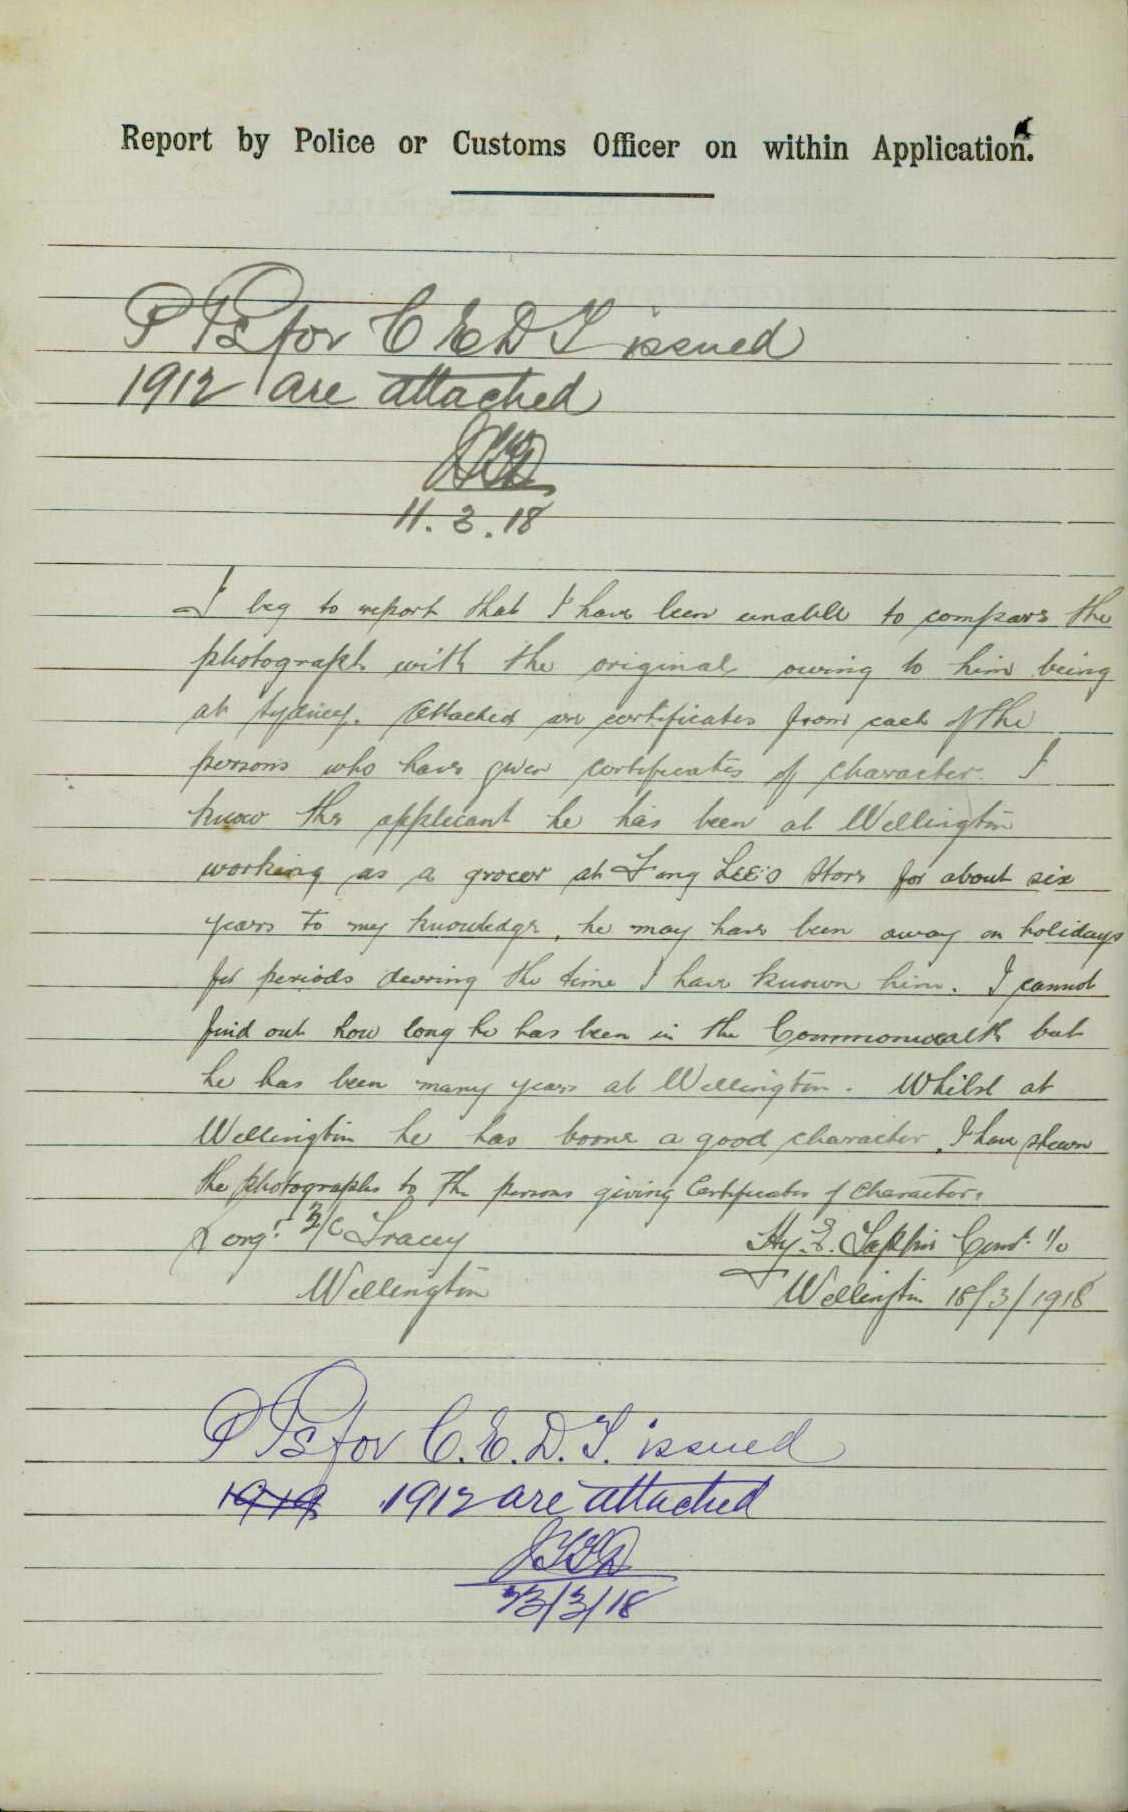 Report by Police or Customs Officer on within Application.
P Ps for C E D T issued
1912 are attached
11.3.18
I beg to report that I have been unable to compare the
photograph with the original owing to him being
at Sydney. Attached are certificates from each of the
persons who have given certificates of character. I
know the applicant he has been at Wellington
working as a grocer at Fong Lee's Store for about six
years to my knowledge, he may have been away on holidays
for periods during the time I have known him. I cannot
find out how long he has been in the Commonwealth but
he has been many years at Wellington. Whilst at
Wellington he has borne a good character, I have shewn
the photographs to the persons giving Certificates of Character.
Tracey
Hy. E. Const. 1/c
Wellington
Wellington 18/3/1918
P Ps for C.E.D.T. issued
1919 1912 are attached
23/3/18